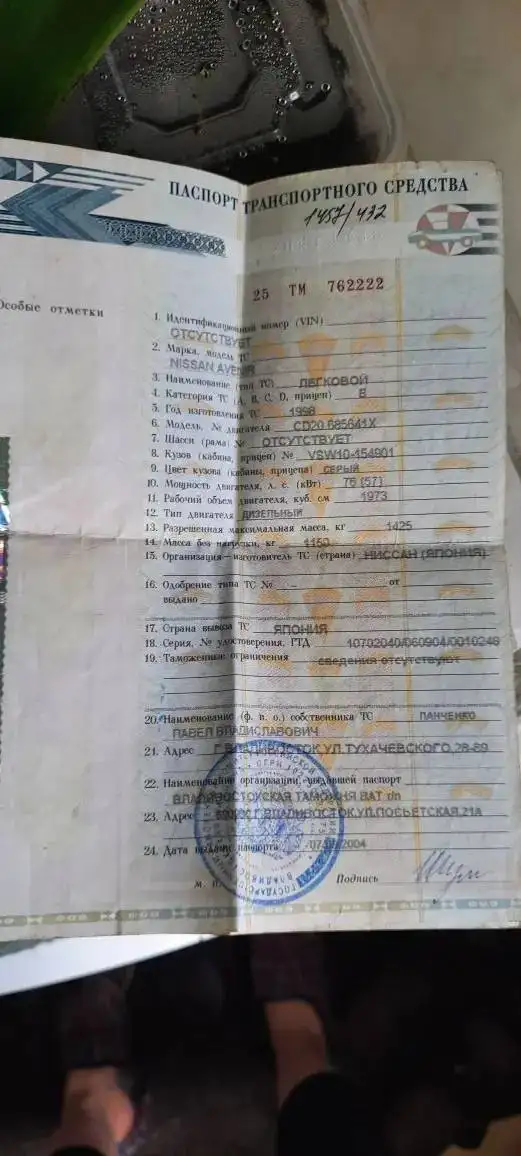 ПАСПОРТ ТРАНСПОРТНОГО СРЕДСТВА
1457/432
25 ТМ 762222
Особые отметки
1. Идентификационный номер (VIN)
ОТСУТСТВУЕТ
2. Марка, модель ТС
NISSAN AVENIR
3. Наименование (тип ТС) ЛЕГКОВОЙ
4. Категория ТС (А, В, С, D, прицеп) В
5. Год изготовления ТС 1998
6. Модель, № двигателя CD20 685641X
7. Шасси (рама) № ОТСУТСТВУЕТ
8. Кузов (кабина, прицеп) № VSW10-154901
9. Цвет кузова (кабины, прицепа) СЕРЫЙ
10. Мощность двигателя, л. с. (кВт) 76 (57)
11. Рабочий объем двигателя, куб. см 1973
12. Тип двигателя ДИЗЕЛЬНЫЙ
13. Разрешенная максимальная масса, кг 1425
14. Масса без нагрузки, кг 1150
15. Организация—изготовитель ТС (страна) НИССАН (ЯПОНИЯ)
16. Одобрение типа ТС № – от
выдано
17. Страна вывоза ТС ЯПОНИЯ
18. Серия, № удостоверения, ГТД 10702040/060904/0010248
19. Таможенные ограничения сведения отсутствуют
20. Наименование (ф. и. о.) собственника ТС ПАНЧЕНКО
ПАВЕЛ ВЛАДИСЛАВОВИЧ
21. Адрес Г.ВЛАДИВОСТОК,УЛ.ТУХАЧЕВСКОГО,28-89
22. Наименование организации, выдавшей паспорт
ВЛАДИВОСТОКСКАЯ ТАМОЖНЯ ВАТ т/п
23. Адрес Г.ВЛАДИВОСТОК,УЛ.ПОСЬЕТСКАЯ,21А
24. Дата выдачи паспорта 2004
М. П. Подпись